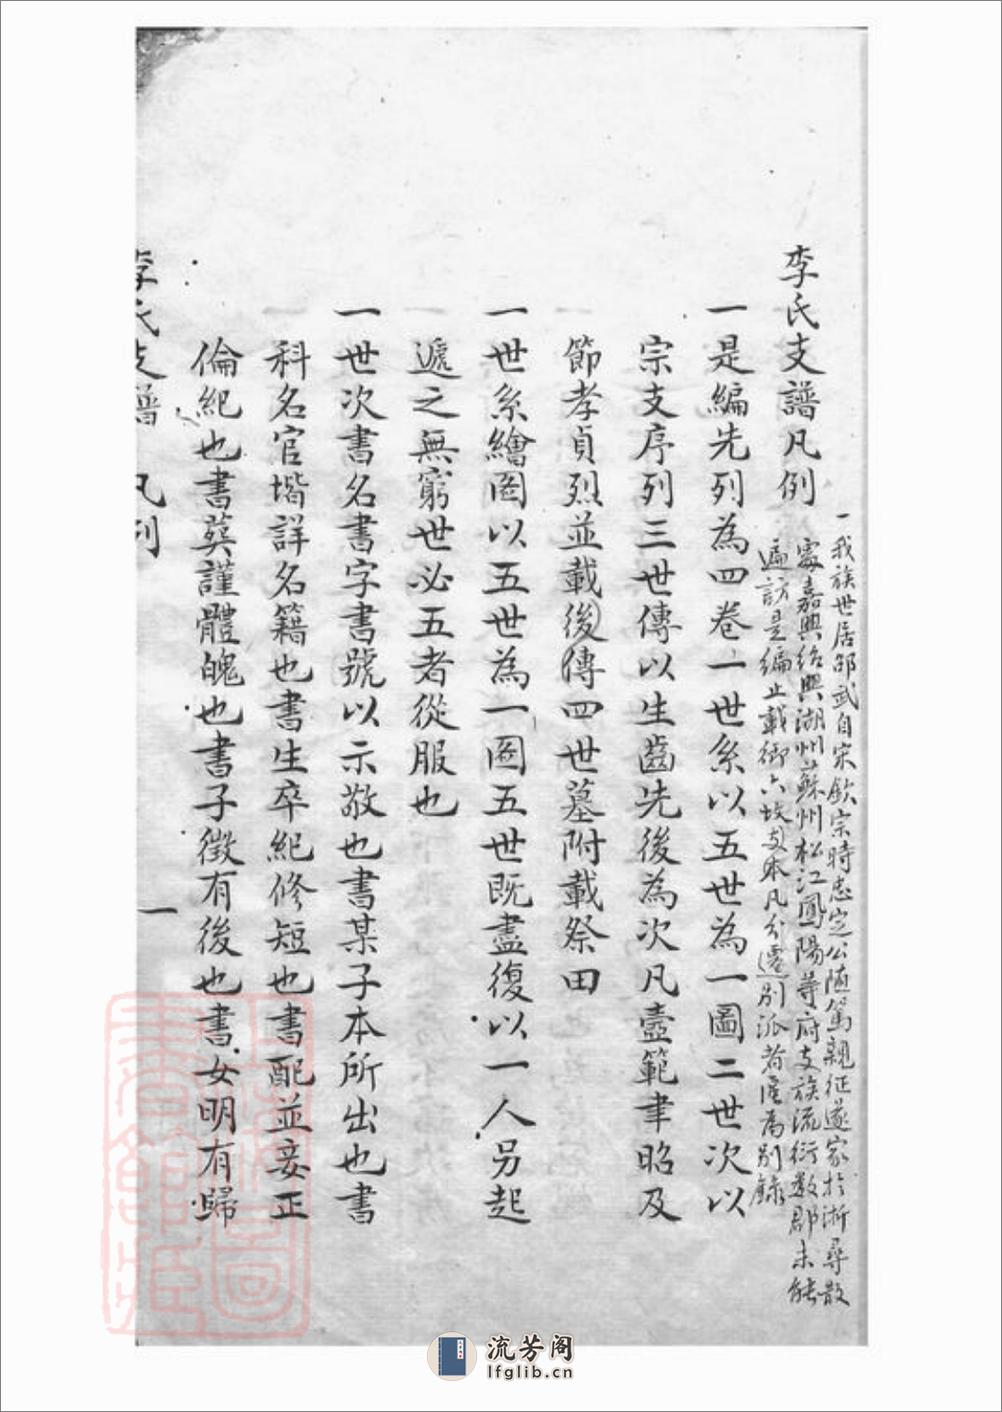 李氏支譜凡例
一我族世居邵武自宋欽宗時忠定公隨駕親征遂家於浙尋散
處嘉興紹興湖州蘇州松江鳳陽等府支族流衍數郡未能
遍訪是編止載御六坟支本凡分遷別派者僅為別錄
一是編先列為四卷一世系以五世為一圖二世次以
宗支序列三世傳以生齒先後為次凡壼範聿昭及
節孝貞烈並載後傳四世墓附載祭田
一世系繪圖以五世為一圖五世既盡復以一人另起
遞之無窮世必五者從服也
一世次書名書字書號以示敬也書某子本所出也書
科名官堦詳名籍也書生卒紀修短也書配並妾正
倫紀也書葬謹體魄也書子徵有後也書女明有歸
李氏支譜 凡例 一
流芳阁
lfglib.cn